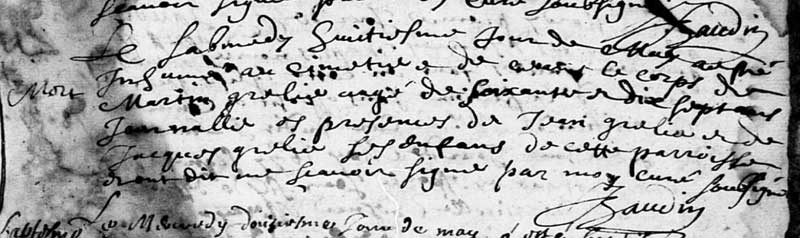 sçavoir signé par moy curé soubsigné
Baudin
Le Sabmedy huitiesme Jour de May a esté
Mort Inhumé au cimetiere de ceans le corps de
Martin grelié aagé de soixante et dix sept ans
Journallié es presences de Jean grelié et de
Jacques grelié ses enfans de cette parroisse
ont dit ne scavoir signe par moy curé soubsigné
Baudin
Le Mecredy douziesme Jour de may a esté